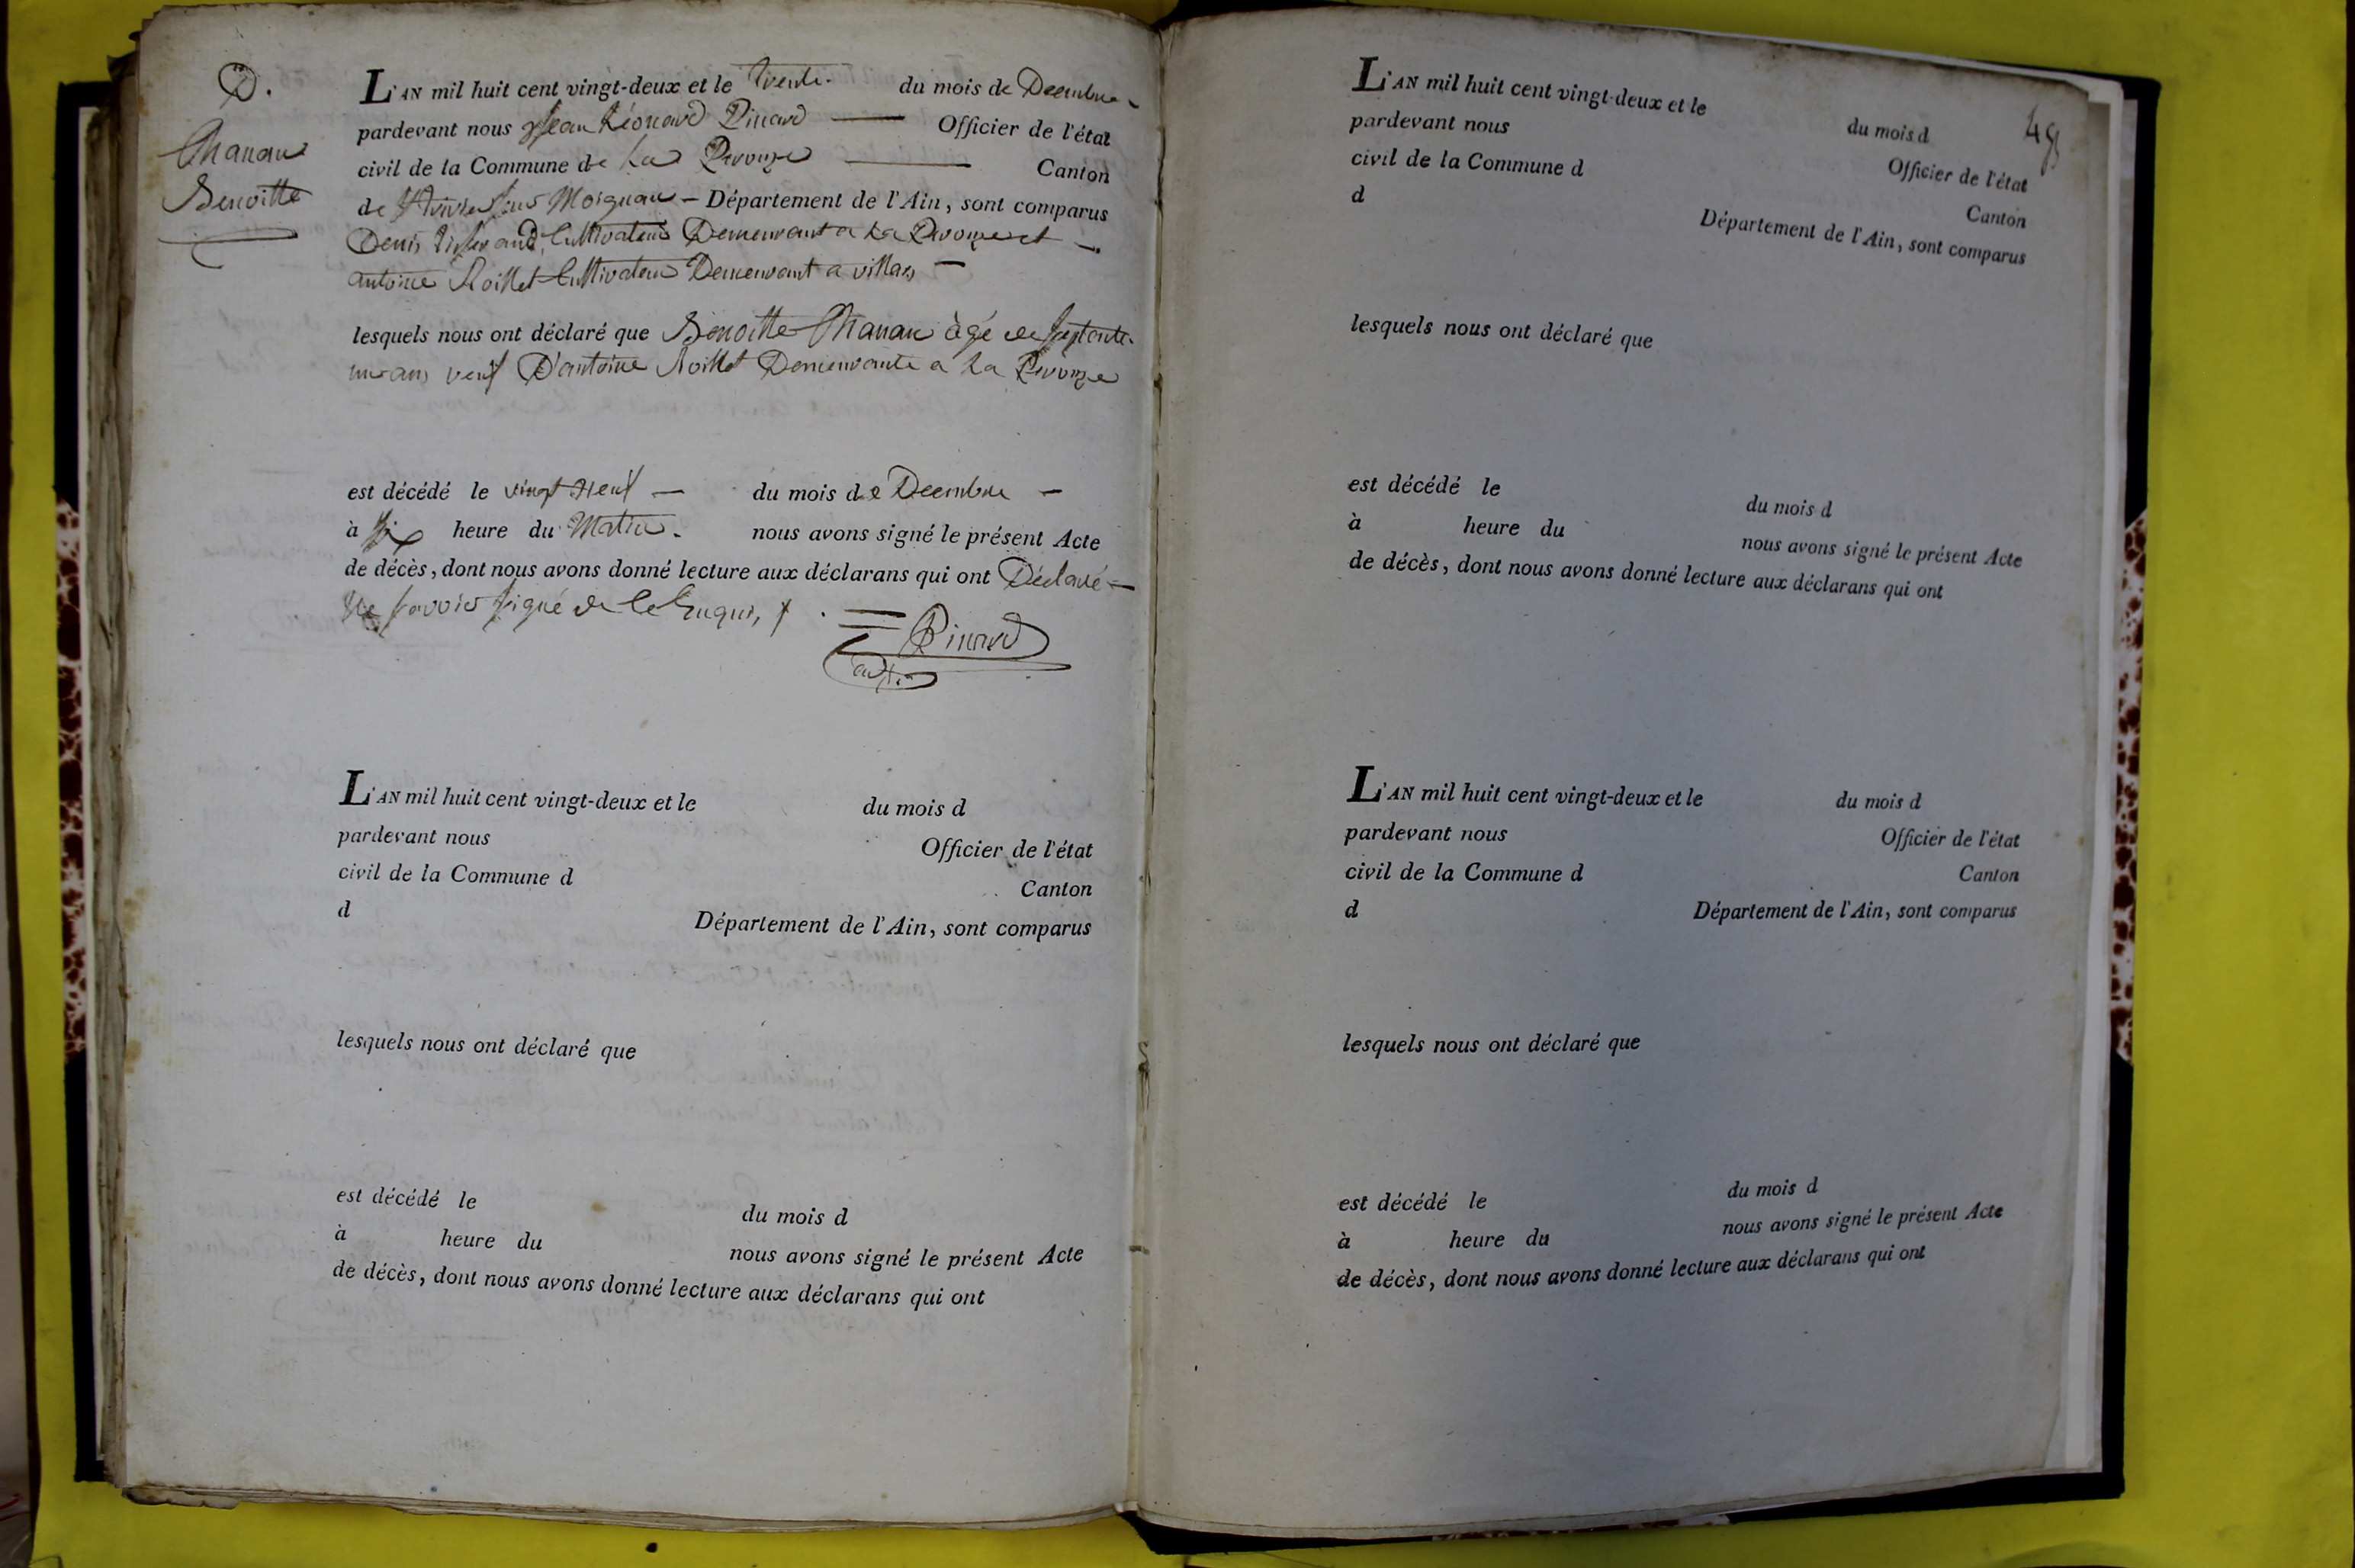 D.
Chanau
Benoitte
L'AN mil huit cent vingt-deux et le trente. du mois de Decembre
pardevant nous Jean Léonard Pinard Officier de l'état
civil de la Commune de La Peyrouze Canton
de Département de l'Ain, sont comparus
Denis Cultivateur Demeurant a La et
antoine Roillet Cultivateur Demeurant a villars
lesquels nous ont déclaré que Benoitte Chanau âgé de septente
un ans veuf D'antoine Roillet Demeurante a La
est décédé le vingt Neuf du mois de Decembre
à Six heure du Matin. nous avons signé le présent Acte
de décès, dont nous avons donné lecture aux déclarans qui ont Déclaré
Ne savoir signé de Ce Enquis
Pinard
L'AN mil huit cent vingt-deux et le du mois d
pardevant nous Officier de l'état
civil de la Commune d Canton
d Département de l'Ain, sont comparus
lesquels nous ont déclaré que
est décédé le du mois d
à heure du nous avons signé le présent Acte
de décès, dont nous avons donné lecture aux déclarans qui ont
49
L'AN mil huit cent vingt-deux et le du mois d
pardevant nous Officier de l'état
civil de la Commune d Canton
d Département de l'Ain, sont comparus
lesquels nous ont déclaré que
est décédé le du mois d
à heure du nous avons signé le présent Acte
de décès, dont nous avons donné lecture aux déclarans qui ont
L'AN mil huit cent vingt-deux et le du mois d
pardevant nous Officier de l'état
civil de la Commune d Canton
d Département de l'Ain, sont comparus
lesquels nous ont déclaré que
est décédé le du mois d
à heure du nous avons signé le présent Acte
de décès, dont nous avons donné lecture aux déclarans qui ont